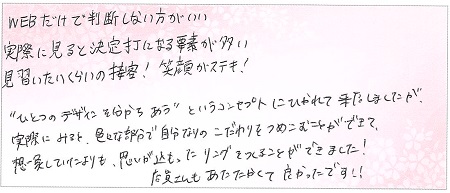 WEBだけで判断しない方がいい
実際に見ると決定打になる要素が多い
見習いたいくらいの接客! 笑顔がステキ!
"ひとつのデザインを分かちあう"というコンセプトにひかれて来店しましたが、
実際にみると、色々な部分で自分なりのこだわりをつめこむことができて、
想像していたよりも、思いが込もったリングをつくることができました!
店員さんもあたたかくて良かったです!!